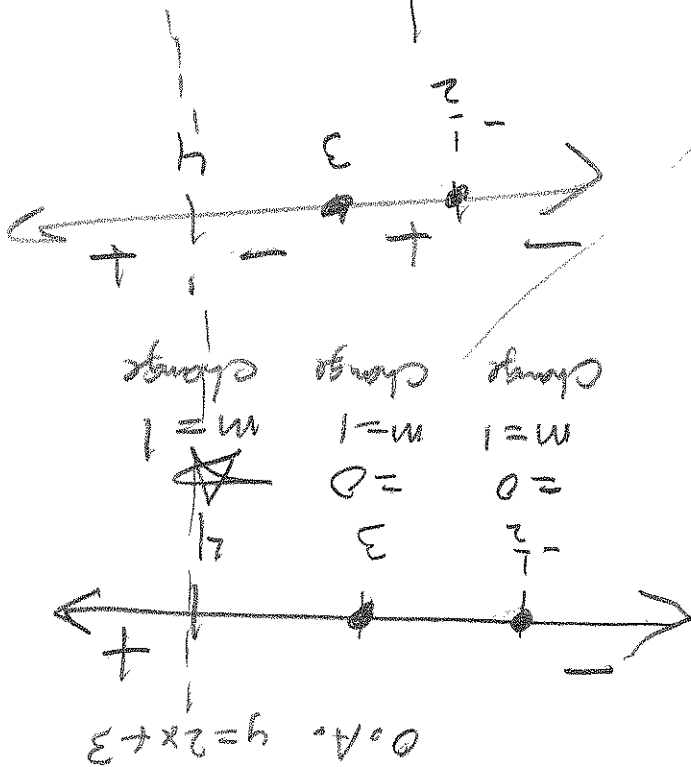 O.A. y=2x+3
− +
-1/2 3 4
=0 =0
m=1 m=1 m=1
Change Change Change
− + − +
-1/2 3 4